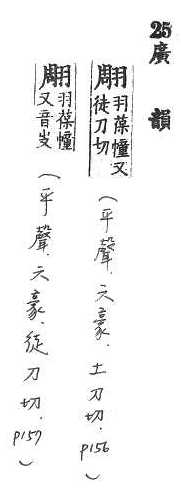 25廣 韻
翢 羽葆幢又
徒刀切
(平聲.六豪.土刀切.p156)
翢 羽葆幢
又音
(平聲.六豪.徒刀切.p157)